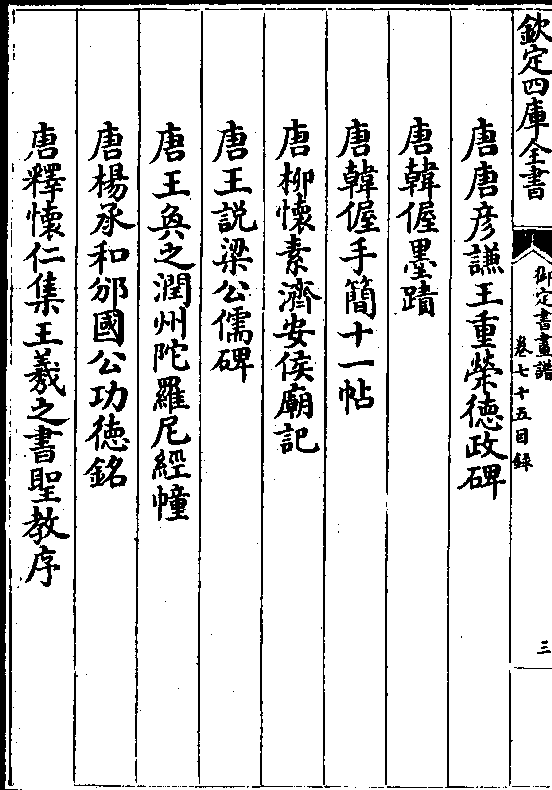 欽定四庫全書
御定書畫譜
卷七十五目録
三
唐唐彦謙王重榮徳政碑
唐韓偓墨蹟
唐韓偓手簡十一帖
唐柳懷素濟安侯廟記
唐王説梁公儒碑
唐王奐之潤州陀羅尼經幢
唐楊承和邠國公功徳銘
唐釋懷仁集王羲之書聖教序